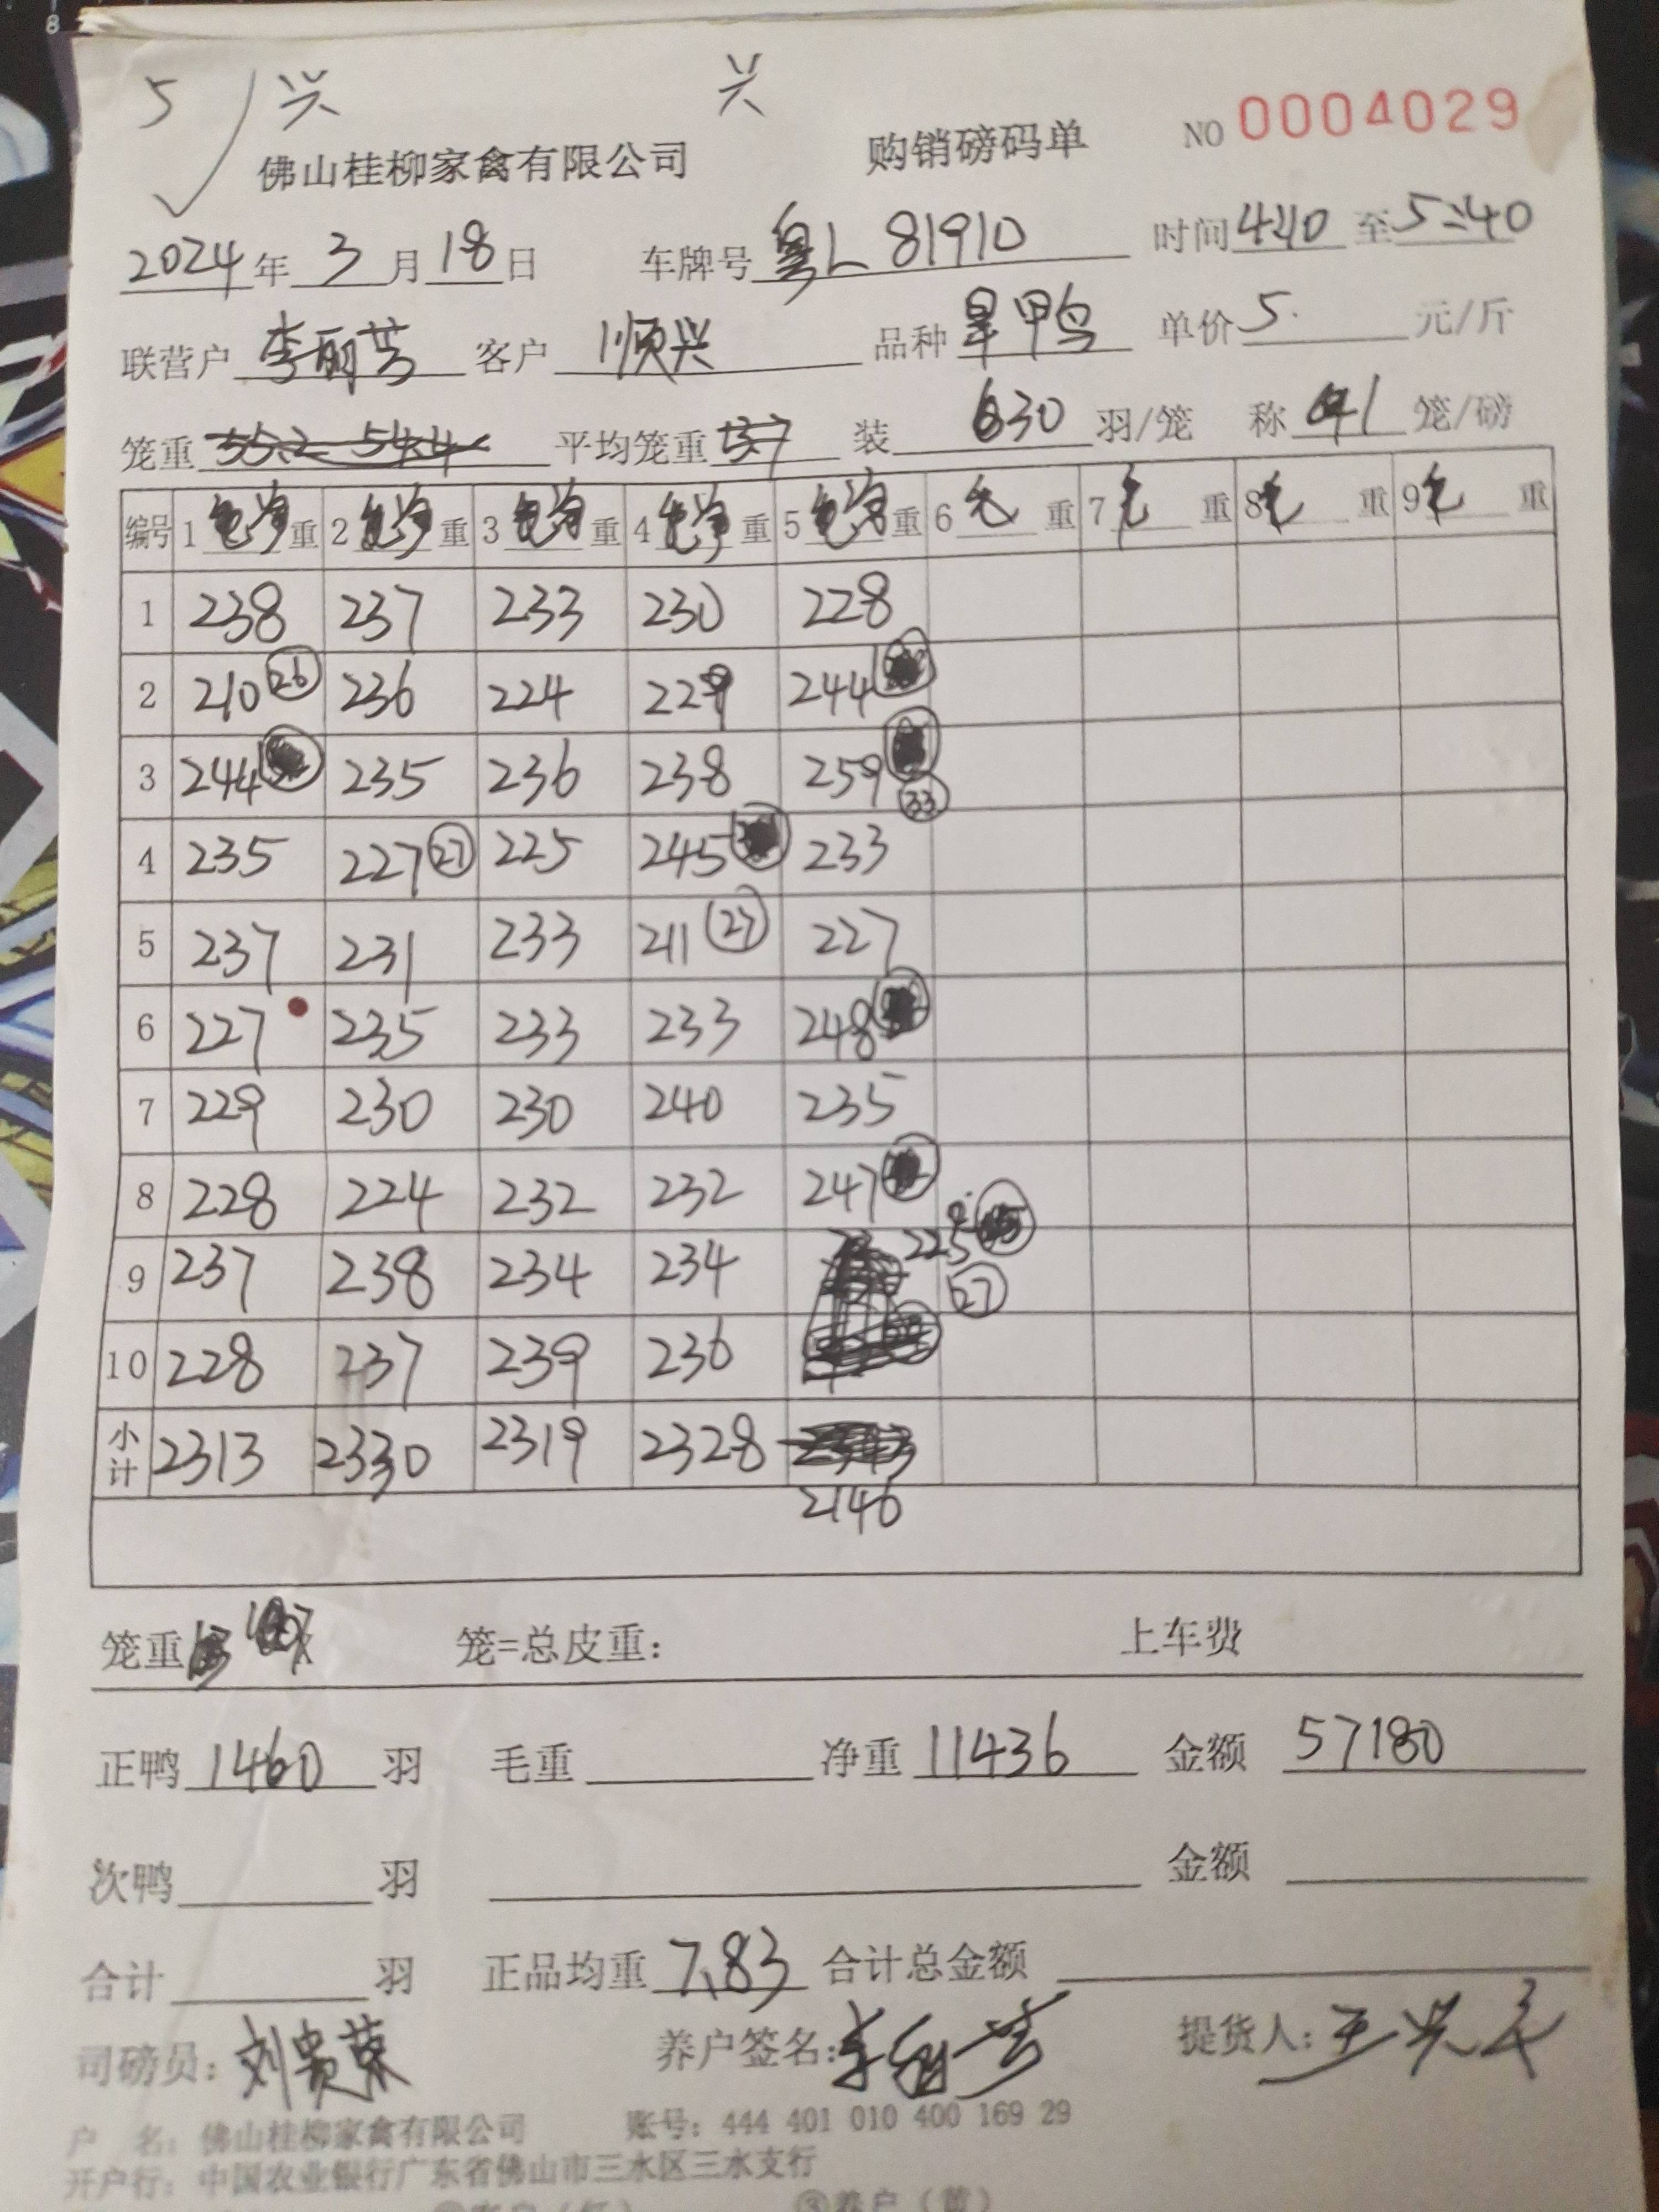 5 兴 兴
佛山桂柳家禽有限公司 购销磅码单 NO 0004029
2024年 3月18日 车牌号 粤L 81910 时间 4:10 至 5:40
联营户 李丽芳 客户 顺兴 品种 旱甲鸟 单价 5. 元/斤
笼重 55.2 54.4 平均笼重 装 630 羽/笼 称 41 笼/磅
编号 1 净重 2 净重 3 净重 4 净重 5 净重 6 毛 重 7 毛 重 8 毛 重 9 毛 重
1 238 237 233 230 228
2 210 26 236 224 229 244
3 244 235 236 238 259 33
4 235 227 27 225 245 233
5 237 231 233 211 27 227
6 227 235 233 233 248
7 229 230 230 240 235
8 228 224 232 232 247
9 237 238 234 234 225 27
10 228 237 239 236
小计 2313 2330 2319 2328
2146
笼重 笼=总皮重: 上车费
正鸭 1460 羽 毛重 净重 11436 金额 57180
次鸭 羽 金额
合计 羽 正品均重 7.83 合计总金额
司磅员: 刘贵荣 养户签名: 李丽芳 提货人: 王兴
户 名: 佛山桂柳家禽有限公司 账号: 444 401 010 400 169 29
开户行: 中国农业银行广东省佛山市三水区三水支行
②客户（红） ③养户（黄）